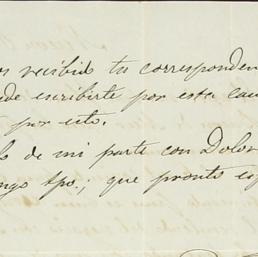 recibid tu corresponden
escribirte por esta cau
por esto.
de mi parte con Dolor
tpo.; que pronto es